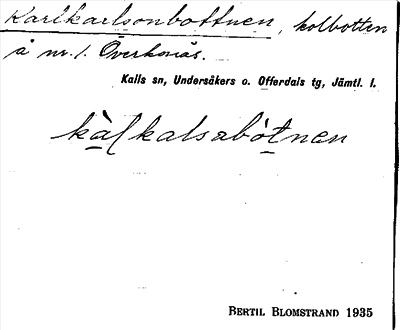 Karlkarlsonbottnen, kolbotten
å nr. 1. Överhonås.
Kalls sn, Undersåkers o. Offerdals tg, Jämtl. l.
kàlkalsabòtnen
BERTIL BLOMSTRAND 1935